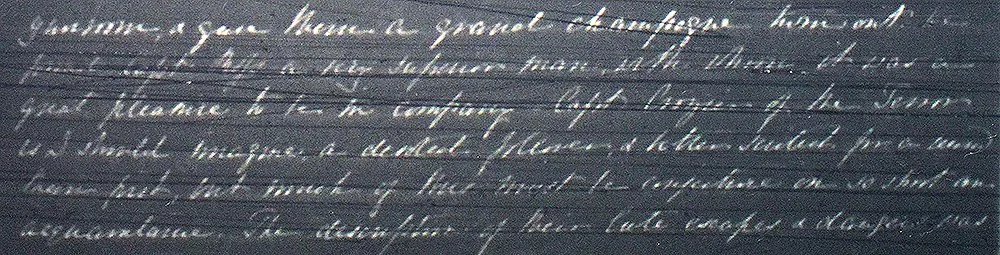 gunroom, & gave them a grand champagne turn out the
first night. Ross a very superior man, with whom it was a
great pleasure to be in company. Capt Crozier of the Terror
is I should imagine, a decided follower, & better suited for a second
than first, but much of this must be conjecture on so short an
acquaintance. The description of their late escapes & dangers was